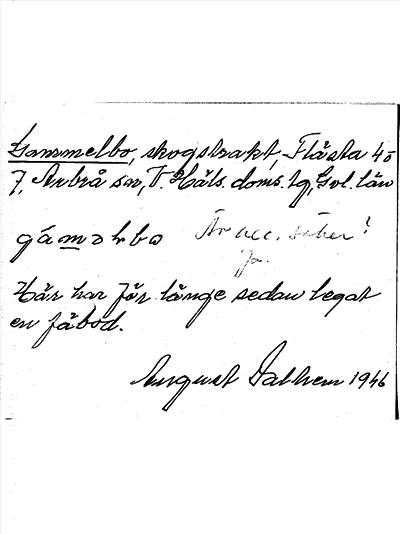 Gammelbo, skogstrakt, Flästa 4 o
7, Arbrå sn, V. Häls. doms. tg, Gvl. län
gámǝlbo Är acc. säker?
Ja.
Här har för länge sedan legat
en fäbod.
August Dalhem 1946